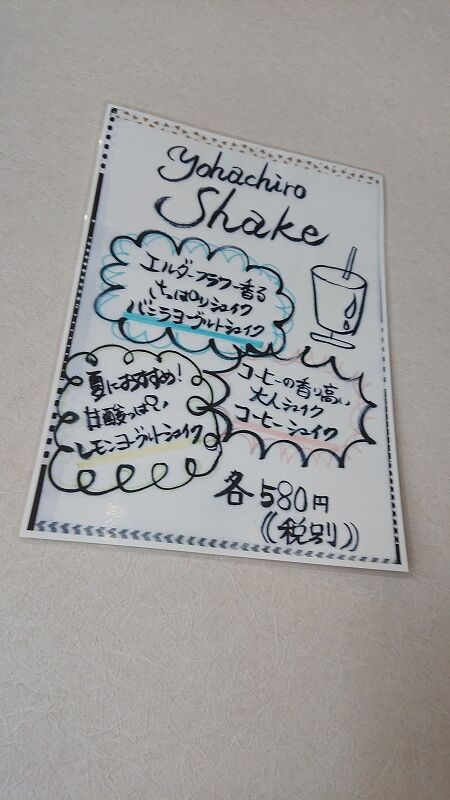 Yohachiro
Shake
エルダーフラワー香る
さっぱりシェイク
バニラヨーグルトシェイク
コーヒーの香り高い
大人シェイク
コーヒーシェイク
夏におすすめ!
甘酸っぱい
レモンヨーグルトシェイク
各580円
((税別))